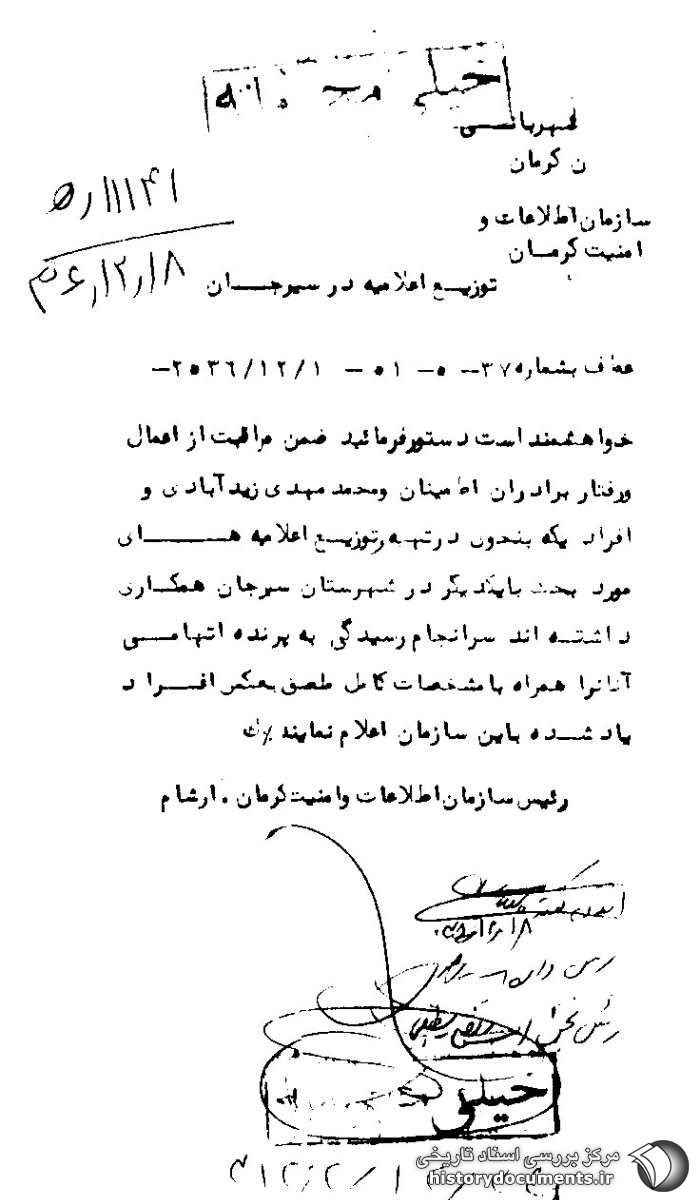 خیلی محرمانه
شهربانی
ن کرمان
۱۱۱۴۱/ه
سازمان اطلاعات و
امنیت کرمان
۳۶/۱۲/۱۸
توزیع اعلامیه در سیرجان
عطف بشماره ۳۷-۵-۰۱ - ۲۵۳۶/۱۲/۱-
خواهشمند است دستور فرمائید ضمن مراقبت از اعمال
ورفتار برادران اطمینان ومحمد مهدی زیدآبادی و
افراد یکه بنحوی درتهیه وتوزیع اعلامیه های
مورد بحث بایکدیگر در شهرستان سیرجان همکاری
داشته اند سرانجام رسیدگی به پرنده اتهامی
آنانرا همراه با مشخصات کامل ملصق بعکس افراد
یاد شده باین سازمان اعلام نمایند
رئیس سازمان اطلاعات وامنیت کرمان . ارشام
خیلی
مرکز بررسی اسناد تاریخی
historydocuments.ir